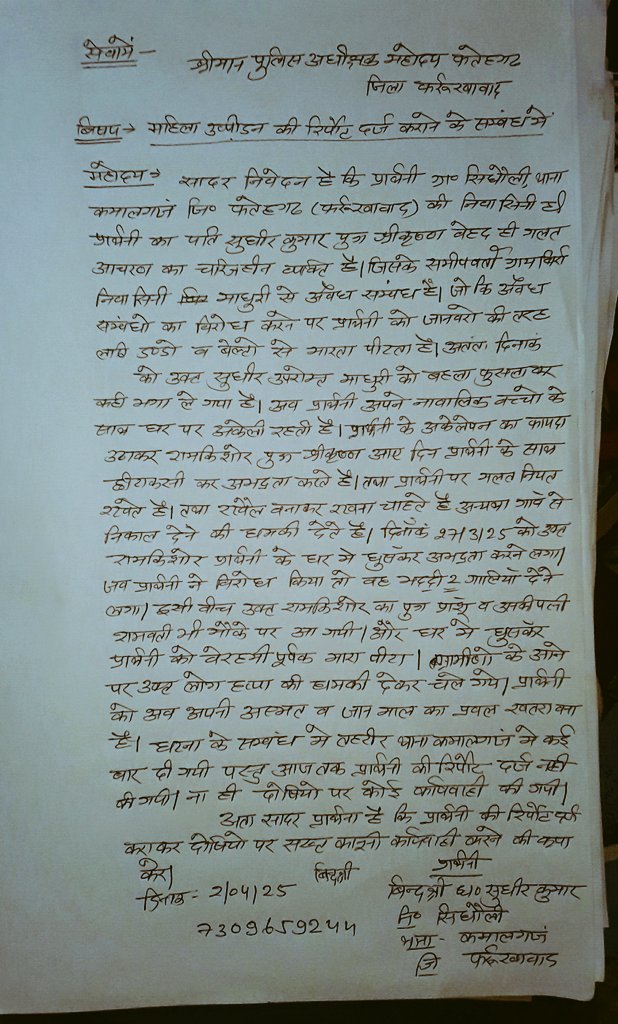 सेवामें -
श्रीमान पुलिस अधीक्षक महोदय फतेहगढ
जिला फर्रूखावाद
बिषय → महिला उप्पीडन की रिर्पोट दर्ज कराने के सम्बंध में
महोदय → सादर निवेदन है कि प्रार्थनी ग्रा० सिधौली, थाना
कमालगजं जि० फतेहगढ (फर्रूखावाद) की निवासिनी है।
प्रार्थनी का पति सुधीर कुमार पुत्र श्रीकृष्ण वेहद ही गलत
आचरण का चरित्रहीन व्यक्ति है। जिसके समीपवर्ती ग्राम
निवासिनी माधुरी से अवैध सम्बंध है। जो कि अवैध
सम्बंधो का विरोध करने पर प्रार्थनी को जानवरो की तरह
लाठी डण्डो व बेल्टो से मारता पीटता है। अतंतः दिनांक
को उक्त सुधीर उपरोक्त माधुरी को बहला फुसला कर
कही भगा ले गया है। अव प्रार्थनी अपने नावालिक वच्चो के
साथ घर पर अकेली रहती है। प्रार्थनी के अकेलेपन का फायदा
उठाकर रामकिशोर पुत्र श्रीकृष्ण आए दिन प्रार्थनी के साथ
छीटाकसी कर अभद्रता करते है। तथा प्रार्थनी पर गलत नियत
रखते है। तथा रखैल वनाकर रखना चाहते है अन्यथा गावँ से
निकाल देने की धमकी देते है। दिनाँक 27/3/25 को उक्त
रामकिशोर प्रार्थनी के घर मे घुसकर अभद्रता करने लगा।
जव प्रार्थनी ने विरोध किया तो वह भद्दी 2 गालियाँ देने
लगा। इसी वीच उक्त रामकिशोर का पुत्र प्राशुँ व उसकी पत्नी
रामवती भी मौके पर आ गयी। और घर मे घुसकर
प्रार्थनी को वेरहमी पूर्वक मारा पीटा। ग्रामीणो के आने
पर उक्त लोग हत्या की धमकी देकर चले गये। प्रार्थनी
को अव अपनी अस्मत व जान माल का प्रवल खतरा वना
है। घटना के सम्वंध मे तहरीर थाना कमालगजं मे कई
बार दी गयी परन्तु आज तक प्रार्थनी की रिर्पोट दर्ज नही
की गयी। ना ही दोषियो पर कोई कार्यवाही की गयी।
अतः सादर प्रार्थना है कि प्रार्थनी की रिर्पोट दर्ज
कराकर दोषियो पर सख्त कानूनी कार्यवाही करने की कृपा
करे।
बिन्दश्री प्रार्थनी
दिनांक - 2/04/25 बिन्दश्री w/o सुधीर कुमार
7309659244 नि० सिधौली
थाना - कमालगजं
जि फर्रूखावाद